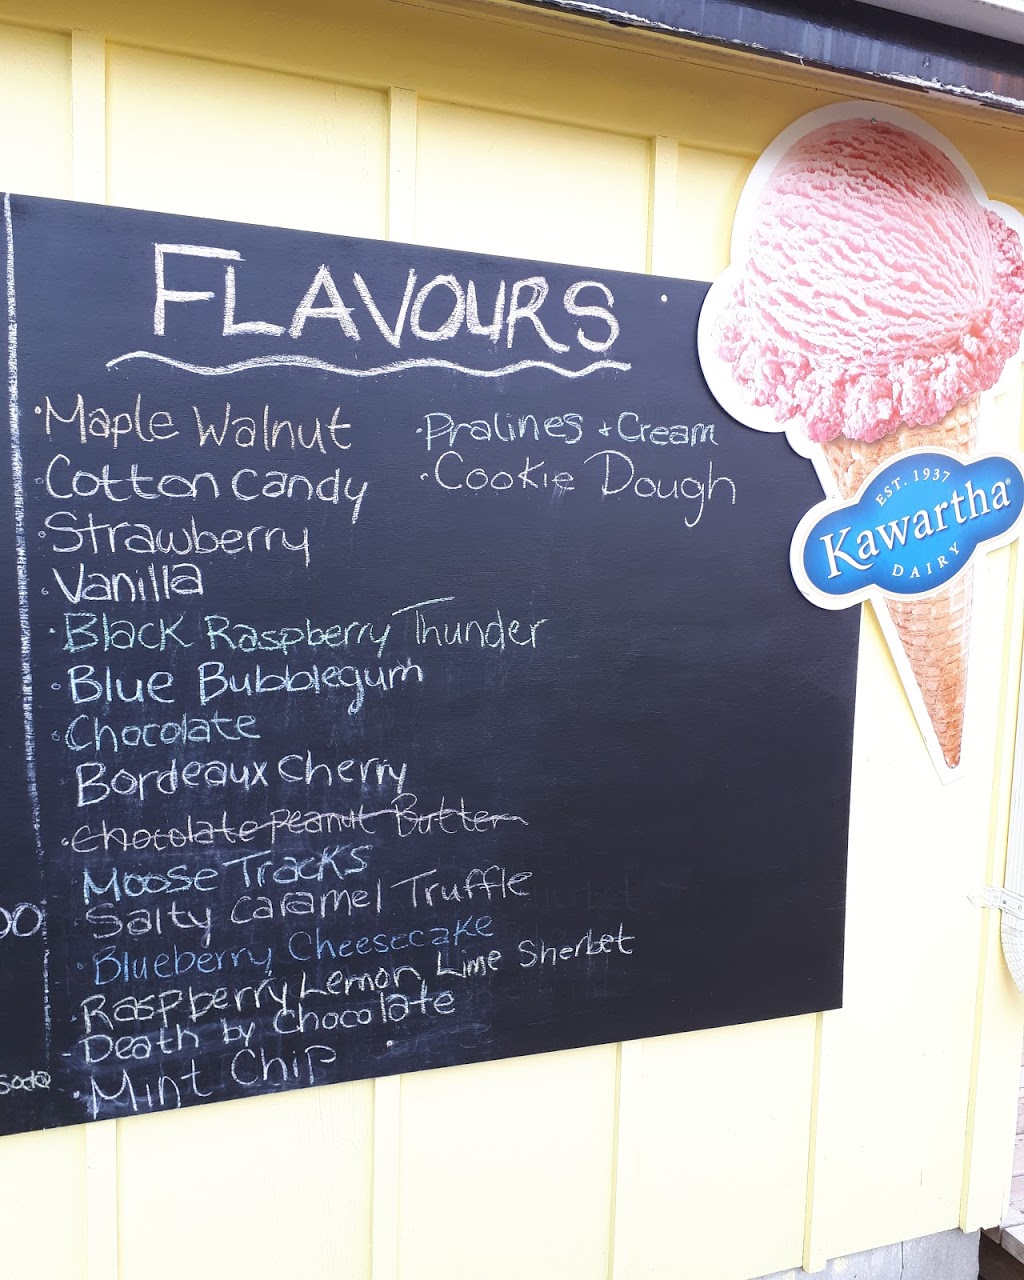 FLAVOURS
Maple Walnut
Cotton Candy
Strawberry
Vanilla
Black Raspberry Thunder
Blue Bubblegum
Chocolate
Bordeaux Cherry
Chocolate Peanut Butter
Moose Tracks
Salty Caramel Truffle
Blueberry Cheesecake
Raspberry Lemon Lime Sherbet
Death by Chocolate
Mint Chip
Pralines + Cream
Cookie Dough
EST. 1937
Kawartha®
DAIRY
00
soda